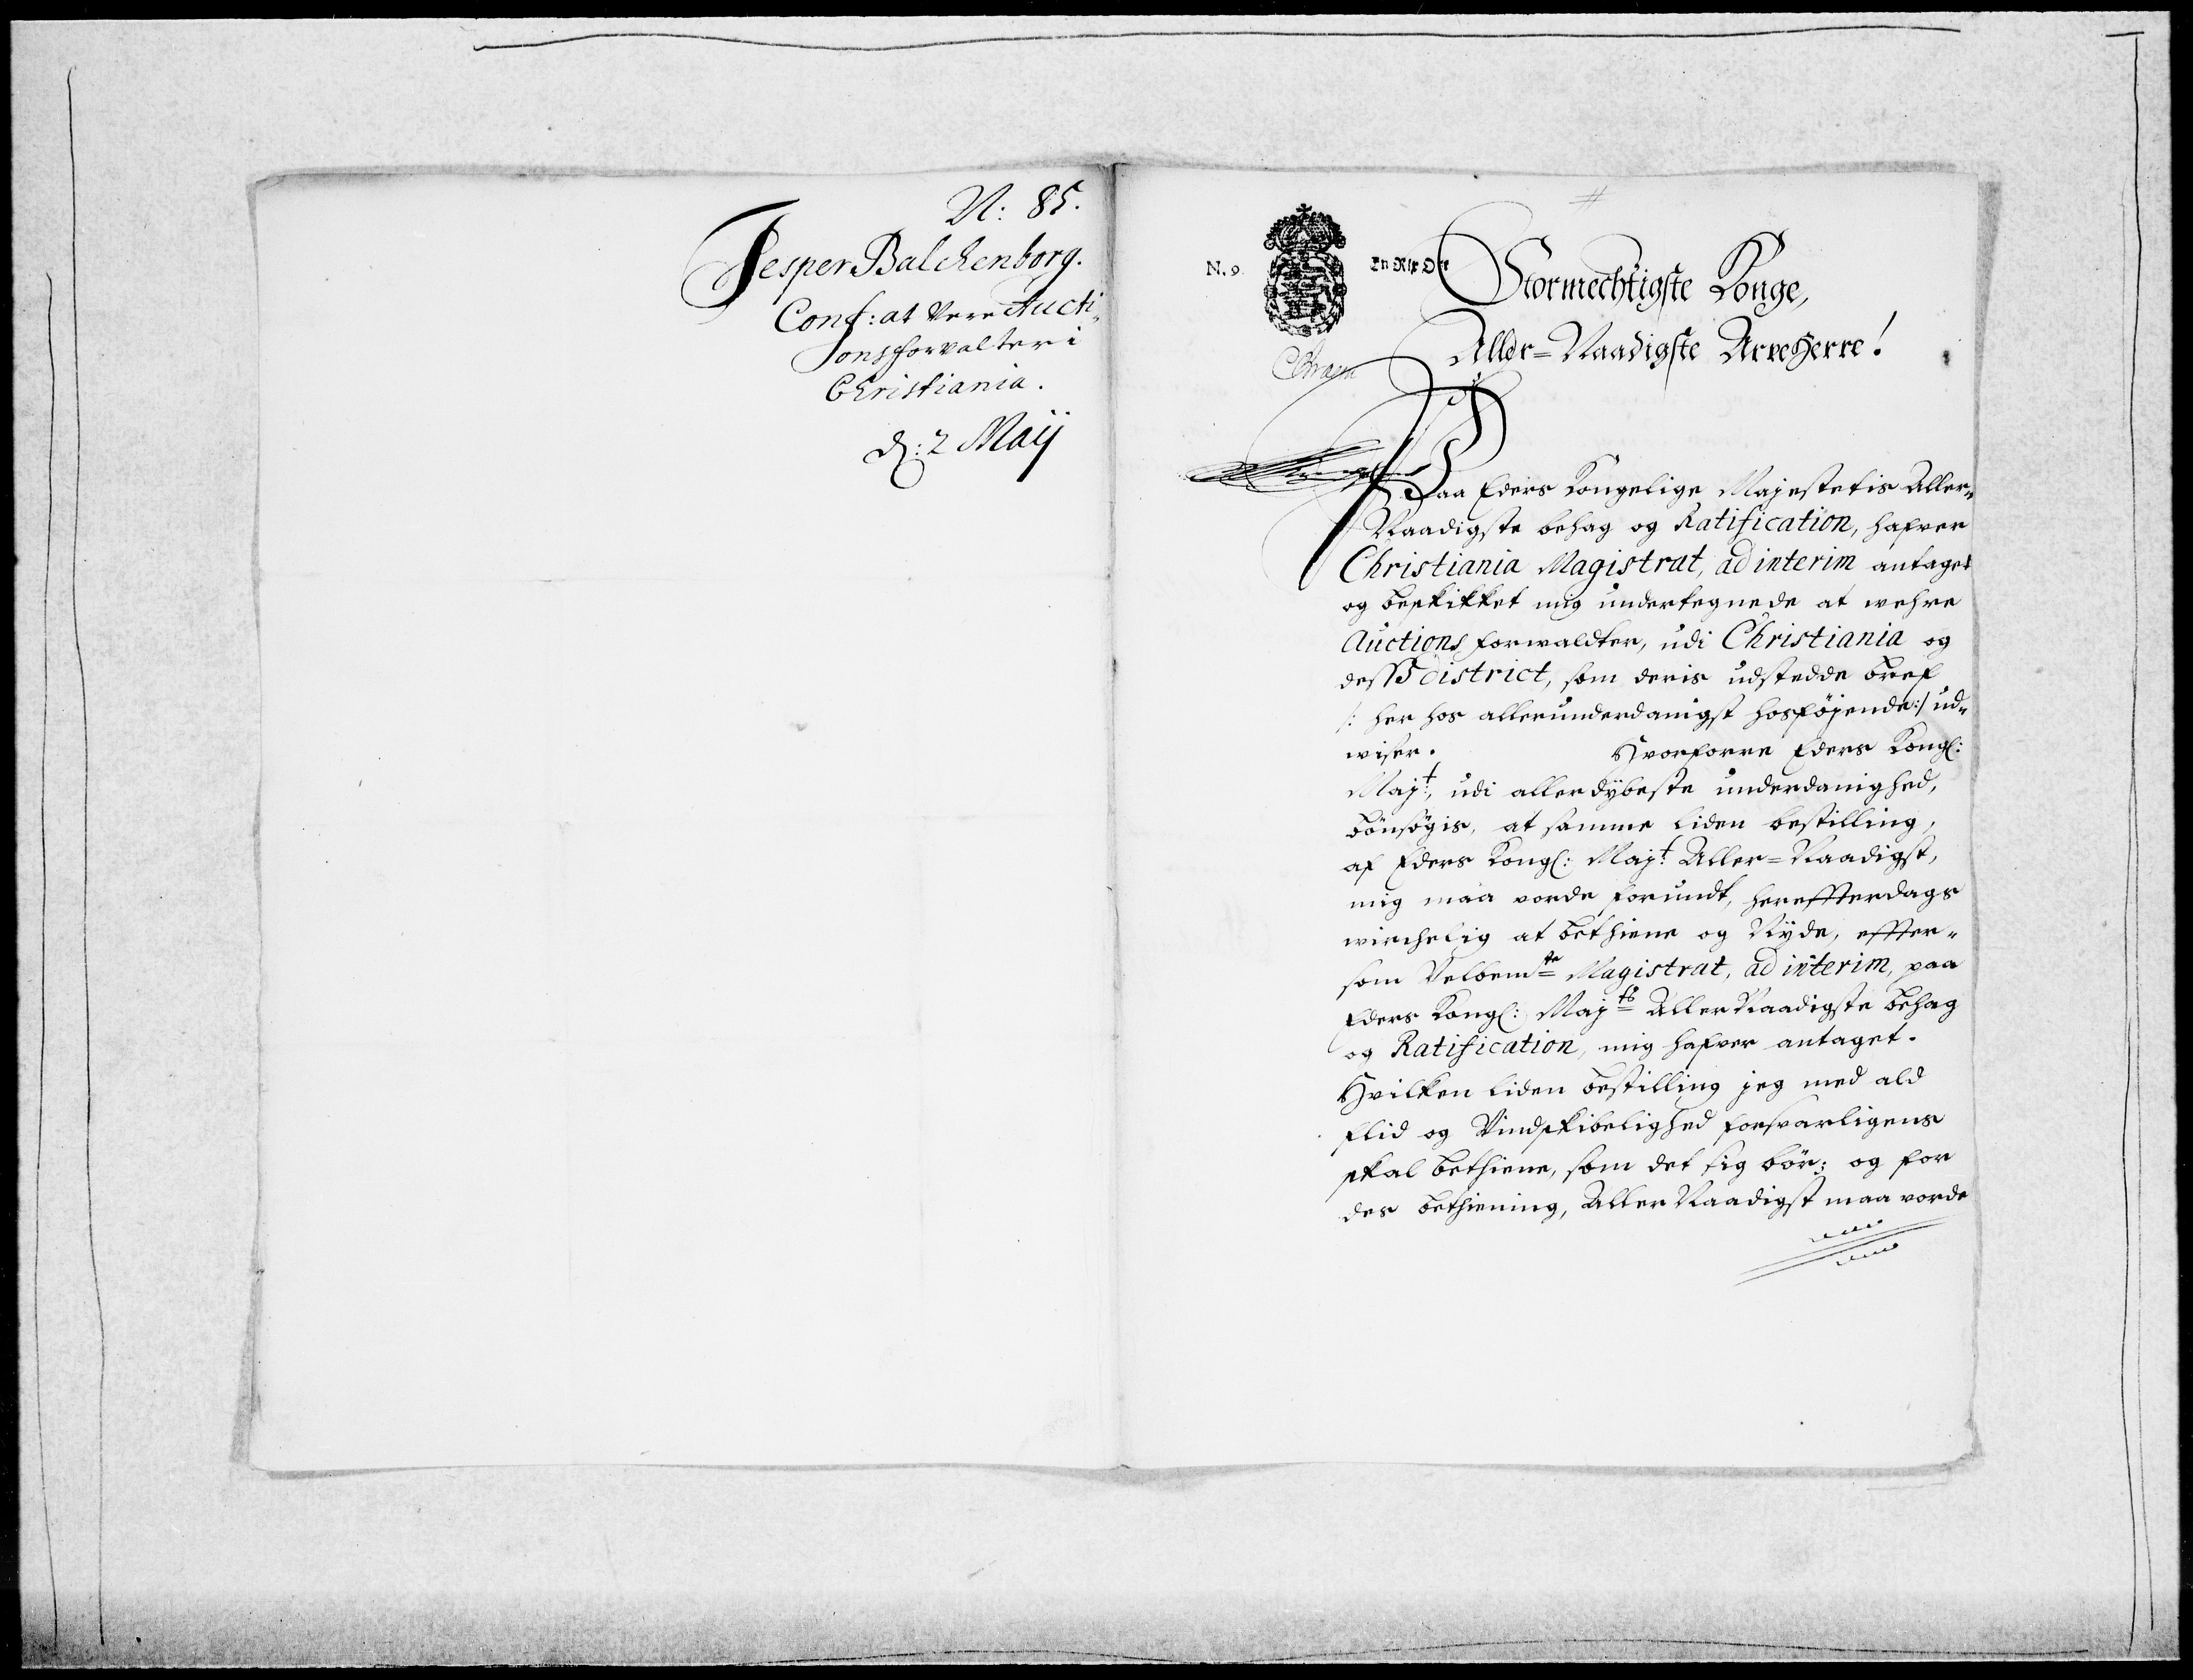 N: 85.
Jesper Balchenborg.
Conf: at Vere Aucti„
onsforvalter i
Christiania.
d: 2 Maij
N. 9.
En Rix Ort
Stormechtigste Konge,
Aller=Naadigste Arveherre!
Paa Eders Kongelige Majestetis Aller„
Naadigste behag og Ratification, hafver
Christiania Magistrat, ad interim antaget
og beskikket mig undertegnede at wehre
Auctions forwaldter, udi Christiania og
dess district, som deris udstedde bref
/: her hos allerunderdanigst hosföjende :/ ud„
wiser. Hvorforre Eders Kongl:
Majt:, udi allerdybeste underdanighed,
bönsögis, at samme liden bestilling,
af Eders Kongl: Majt: Aller=Naadigst,
mig maa vorde forundt, hereffterdags
wirchelig at bethiene og Nyde, effter„
som Velbemte Magistrat, ad interim, paa
Eders Kongl: Majts AllerNaadigste behag
og Ratification, mig hafver antaget.
Hvilken liden bestilling jeg med ald
flid og Vindskibelighed forsvarligens
skal bethiene, som det sig bör; og for
des bethiening, AllerNaadigst maa vorde